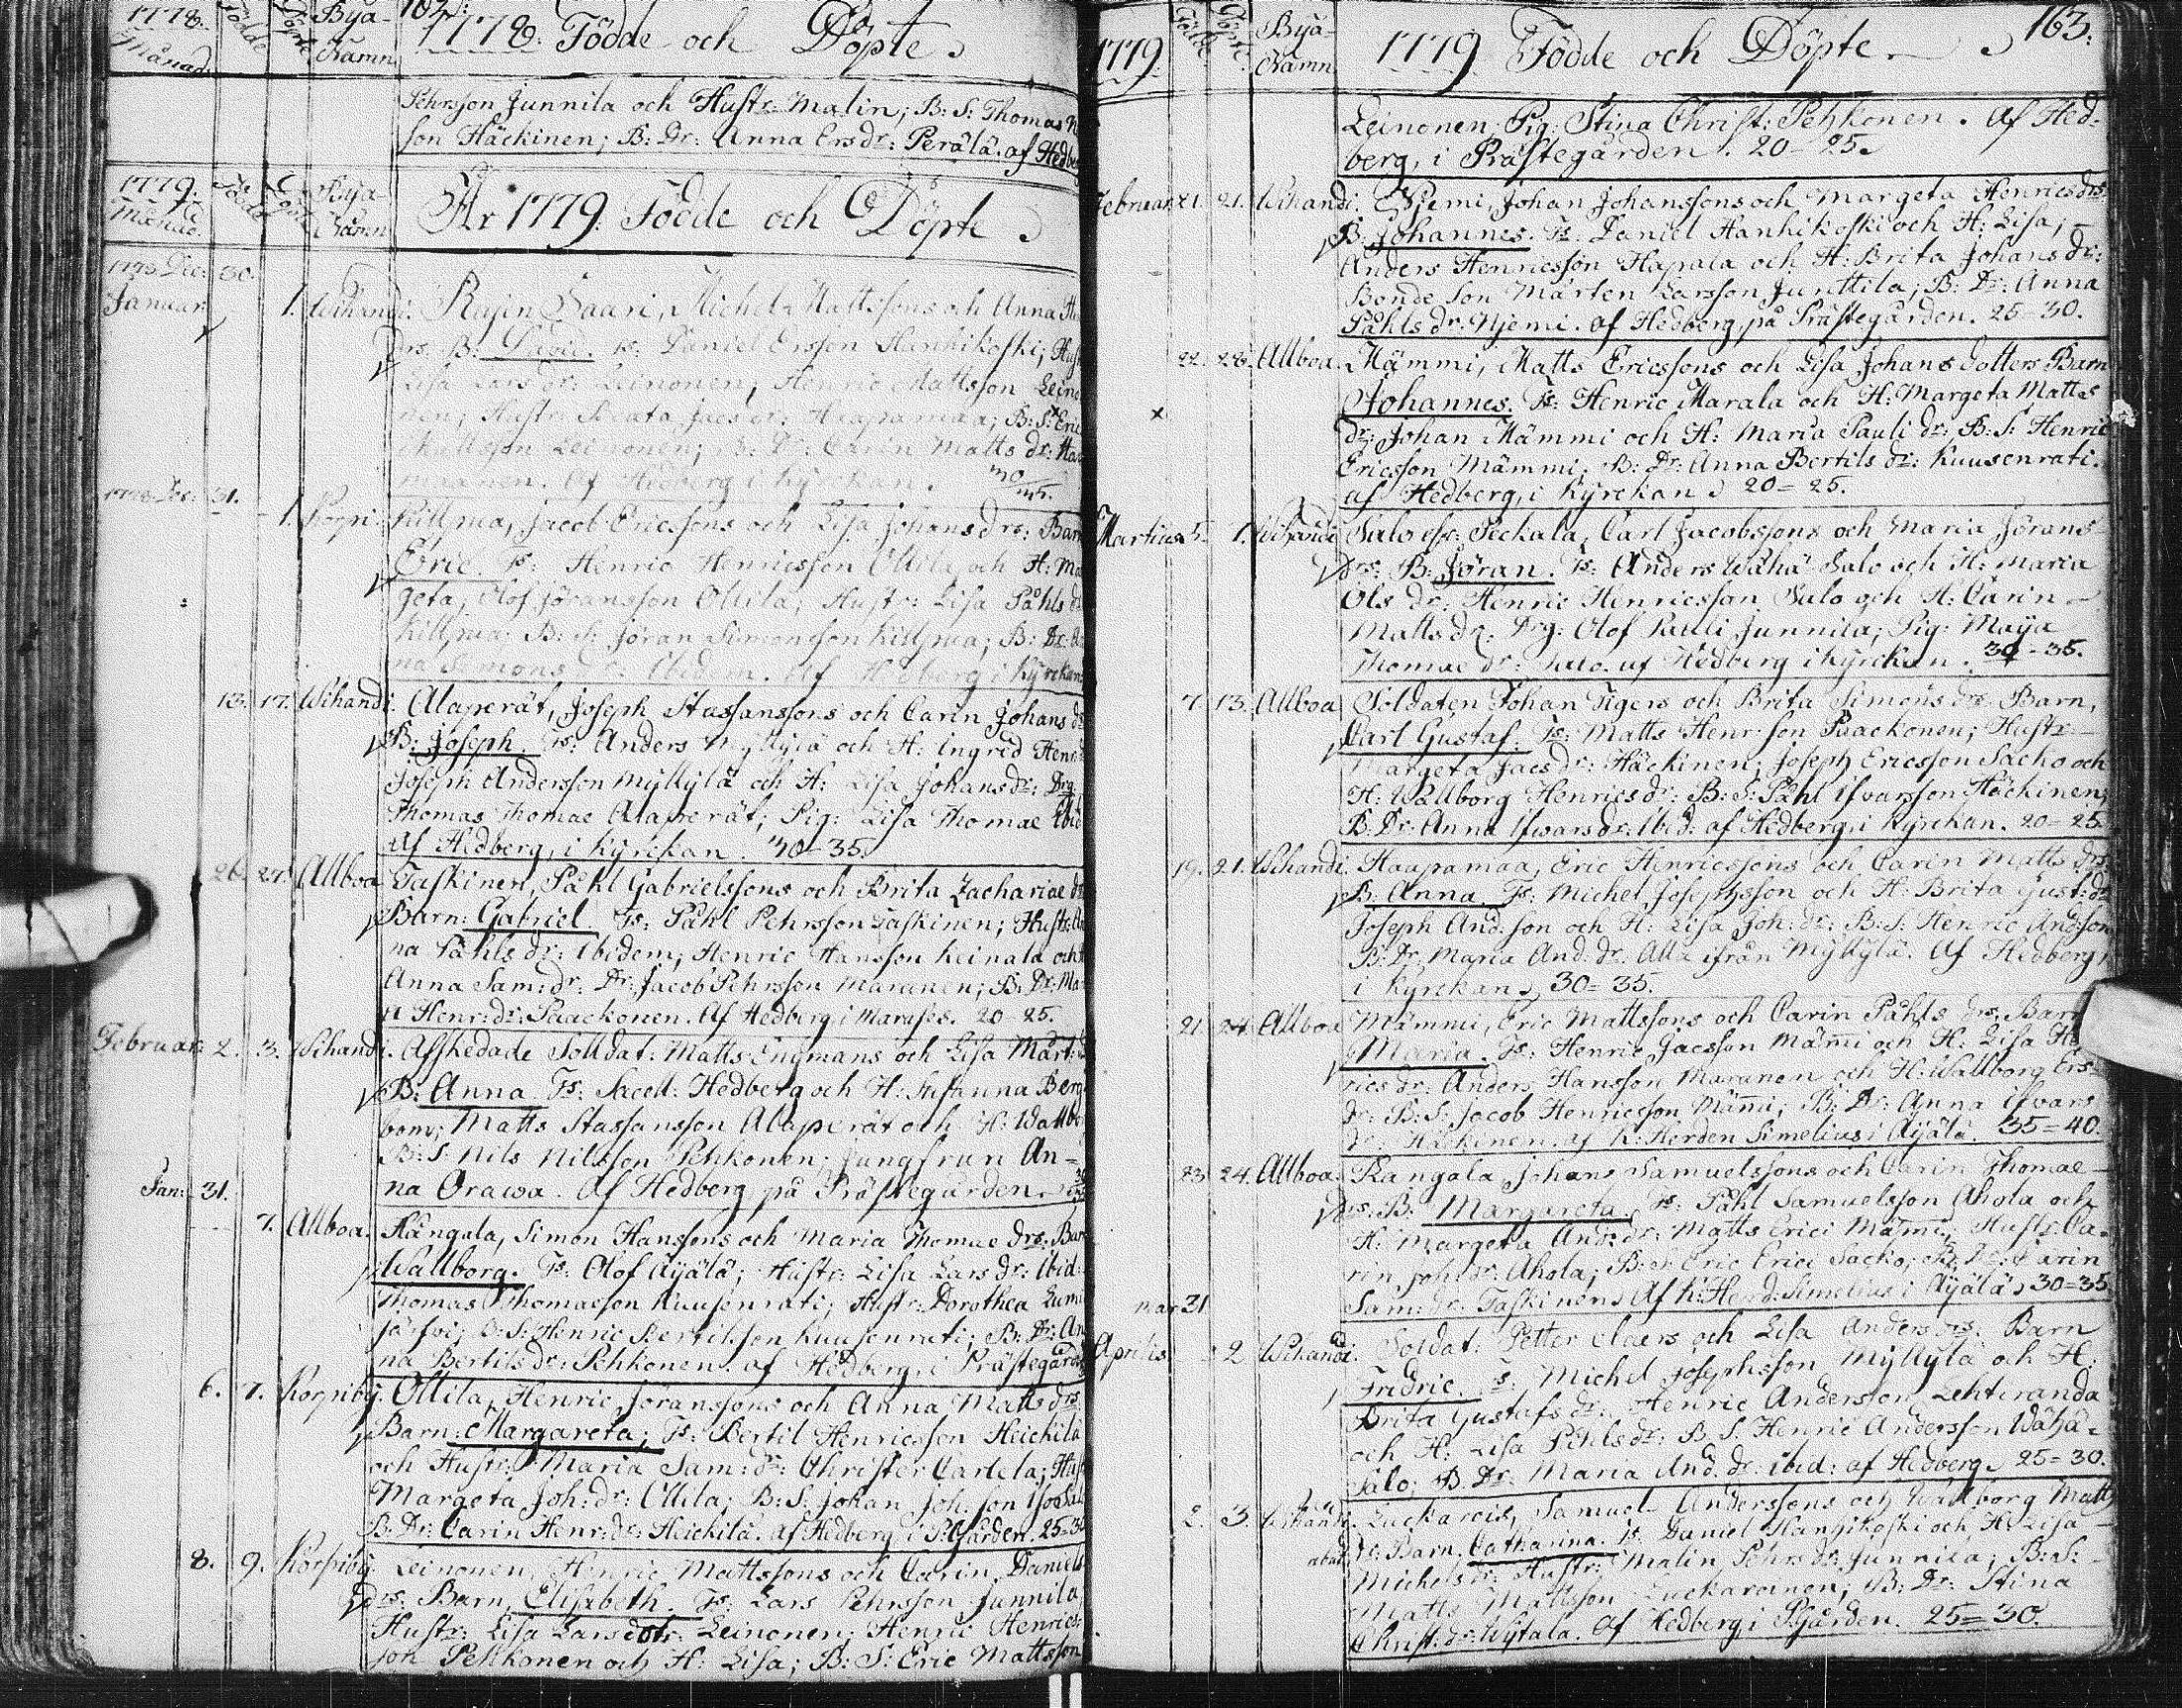 1778. Födde Döpte Bya- 162:
Månad. Namn 1778. Födde och Döpte.
Pehrsson Junnila och Hustr: Malin; B: S: Thomas
son Häckinen; B: Dr: Anna Ersdr: Perälä. af Hedberg
1779. Födde Döpte Bya-
Månad. Namn Åhr 1779. Födde och Döpte.
1778 Dec: 30.
Januar. 1. Wihandi. Rajin Saari, Michel Mattssons och Anna
drs. B: David. Ts: Daniel Ersson Hanhikoski; Hustr
Lisa Lars dr: Leinonen; Henric Mattsson Leino
nen; Hustr Beata Jacs dr: Haapamaa; B: S: Eric
Mattsson Leinonen; B: Dr: Carin Matts dr:
maanen. Af Hedberg i Kyrckan. 30/35.
1778 Dec: 31. 1. Korpi: Killjma, Jacob Ericssons och Lisa Johans drs: Barn
Eric. Ts: Henric Henricsson Ollila och H: Mar
geta; Olof Jöransson Ollila; Hustr: Lisa Påhls dr
Killjma; B: S: Jöran Simonsson Killjma; B: Dr: An
na Simons dr: Ibidem. Af Hedberg i Kyrckan
13. 17. Wihandi. Alaperät, Joseph Staffanssons och Carin Johans dr
B: Joseph. Ts: Anders Myllylä och H: Ingred Henr
Joseph Andersson Myllylä och H: Lisa Johans dr: Drg:
Thomas Thomae Alaperät; Pig: Lisa Thomae Ibid
af Hedberg, i Kyrckan. 30-35.
26. 27. Allboa Taskinen, Påhl Gabrielssons och Brita Zachariae dr
Barn: Gabriel. Ts: Påhl Pehrsson Taskinen; Hustr: An
na Påhls dr: Ibidem; Henric Hansson Keinala och H
Anna Sam: dr: Dr: Jacob Pehrsson Maranen; B: Dr: Ma
Henr: dr: Paackonen. Af Hedberg, i 20-25.
Februar: 2. 3. Wihandi. Afskedade Solldat: Matts Engmans och Lisa Mårt:
B: Anna Ts: Sacell: Hedberg och H: Susanna Berg
bom; Matts Staffansson Alaperät och H: Wallbor
B: S: Nils Nilsson Pehkonen; Jungfrun An=
na Orawa. Af Hedberg på Prästegården.
Jan: 31.
7. Allboa. Kångala, Simon Hanssons och Maria Thomae drs: Barn
Wallborg. Ts: Olof Äijälä; Hustr: Lisa Lars dr: Ibid:
Thomas Thomasson Kuusenrati; Hustr: Dorothea Lumi
järfvi; B: S: Henric Bertilsson Kuusenrati; B: Dr: An
na Bertils dr: Pehkonen. af Hedberg, i Prästegården
6. 7. Korpiby. Ollila, Henric Jöranssons och Anna Matts drs
Barn: Margareta; Ts: Bertil Henricsson Heickilä
och Hustr: Maria Sam: dr: Christer Cartela; Hustr
Margeta Joh: dr: Ollila; B: S: Johan Joh: son Iso Salo
B: Dr: Carin Henr: dr: Heickilä. af Hedberg i P:gården. 25=30
8. 9. Korpiby. Leinonen, Henric Mattssons och Carin Daniels
drs: Barn, Elisabeth. Ts: Lars Pehrsson Junnila,
Hustr: Lisa Larsdotr: Leinonen; Henric Henrics:
son Pehkonen och H: Lisa; B: S: Eric Mattsson
1779 Födde Döpte Bya- Namn 1779 Födde och Döpte. 163:
Leinonen; Pig: Stina Christ: Pehkonen. Af Hed:
berg, i Prästegården. 20-25.
Februar. 21. 21. Wihandi. Niemi, Johan Johanssons och Margeta Henricsdrs:
B: Johannes. Ts: Daniel Hanhikoski och H: Lisa;
Anders Henricsson Hapala och H: Brita Johans dr:
Bonde Son Mårten Larsson Junttila; B: Dr: Anna
Påhls dr: Niemi. af Hedberg, på Prästegården. 25-30.
22. 28. Allboa. Mämmi, Matts Ericssons och Lisa Johans dotters Barn
Johannes. Ts: Henric Marala och H: Margeta Matts
dr: Johan Mämmi och H: Maria Pauli dr: B: S: Henric
Ericsson Mämmi; B: Dr: Anna Bertils dr: Kuusenrati.
af Hedberg, i Kyrckan. 20=25.
Martius. 5. 7. Wihandi Salo eller Peckala, Carl Jacobssons och Maria Jörans
drs: B: Jöran. Ts: Anders Wähä Salo och H: Maria
Ols dr: Henric Henricsson Salo och H: Carin
Matts dr. Drg: Olof Pauli Junnila; Pig: Maija
Thomae dr: Salo. af Hedberg i Kyrckan. 30-35.
7. 13. Allboa Soldaten Johan Tigers och Brita Simons drs. Barn,
Carl Gustaf. Ts: Matts Henr: son Paackonen; Hustr:
Margeta Jacs dr: Häckinen; Joseph Ericsson Säcko och
H: Wallborg Henrics dr: B: S: Påhl Ifvarsson Häckinen;
B: Dr: Anna Ifwars dr. Ibid: af Hedberg, i Kyrckan. 20-25.
19. 21. Wihandi. Haapamaa, Eric Henricssons och Carin Matts drs
B: Anna. Ts: Michel Josephsson och H: Brita Gust: dr
Joseph And: son och H: Lisa Joh: dr: B: S: Henric And: son
B: Dr: Maria And: dr. Alla ifrån Myllylä. Af Hedberg,
i Kyrckan. 30=35.
21. 24. Allboa Mämmi, Eric Mattssons och Carin Påhls drs. Barn
Maria. Ts: Henric Jacsson Mämi och H: Lisa
rics dr: Anders Hansson Maranen och H: Wallborg Ers
dr: B: S: Jacob Henricsson Mämi; B: Dr: Anna Ifvars
dr: Häckinen. af K: Herden Simelius i Äijälä. 35=40.
23. 24. Allboa. Kangala Johans Samuelssons och Carin Thomae
drs. B: Margareta. Ts: Påhl Samuelsson Ahola och
H: Margeta And: dr: Matts Erici Mämi; Hustr: Ca-
rin Joh: dr: Ahola; B: S: Eric Erici Säcko; B: Dr: Carin
Sam: dr: Taskinen. Af K: Herd: Simelius i Äijälä. 30=35
Mar 31
Aprilis. 2 Wihandi. Soldat: Petter Claers och Lisa Anders drs: Barn
Fredric. Ts: Michel Josephsson Myllylä och H:
Brita Gustafs dr. Henric Andersson Lehteranda
och H: Lisa Påhls dr: B: S: Henric Andersson Wähä-
Salo; B: Dr: Maria And: dr ibid: af Hedberg. 25=30.
2. 3. Wihandi. Luckarois, Samuel Anderssons och Wallborg Matts
dr: Barn, Catharina. Ts. Daniel Hanhikoski och H: Lisa
Michels dr: Hustr: Malin Pehrs dr: Junnila; B: S:
Matts Mattsson Luckaroinen; B: Dr: Stina
Christ: dr: Wytala. Af Hedberg, i P:gården. 25=30.